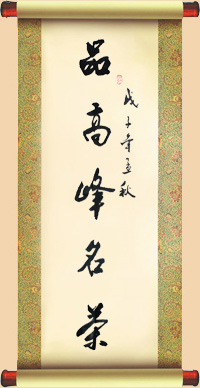 品高峰名茶
戊子年孟秋